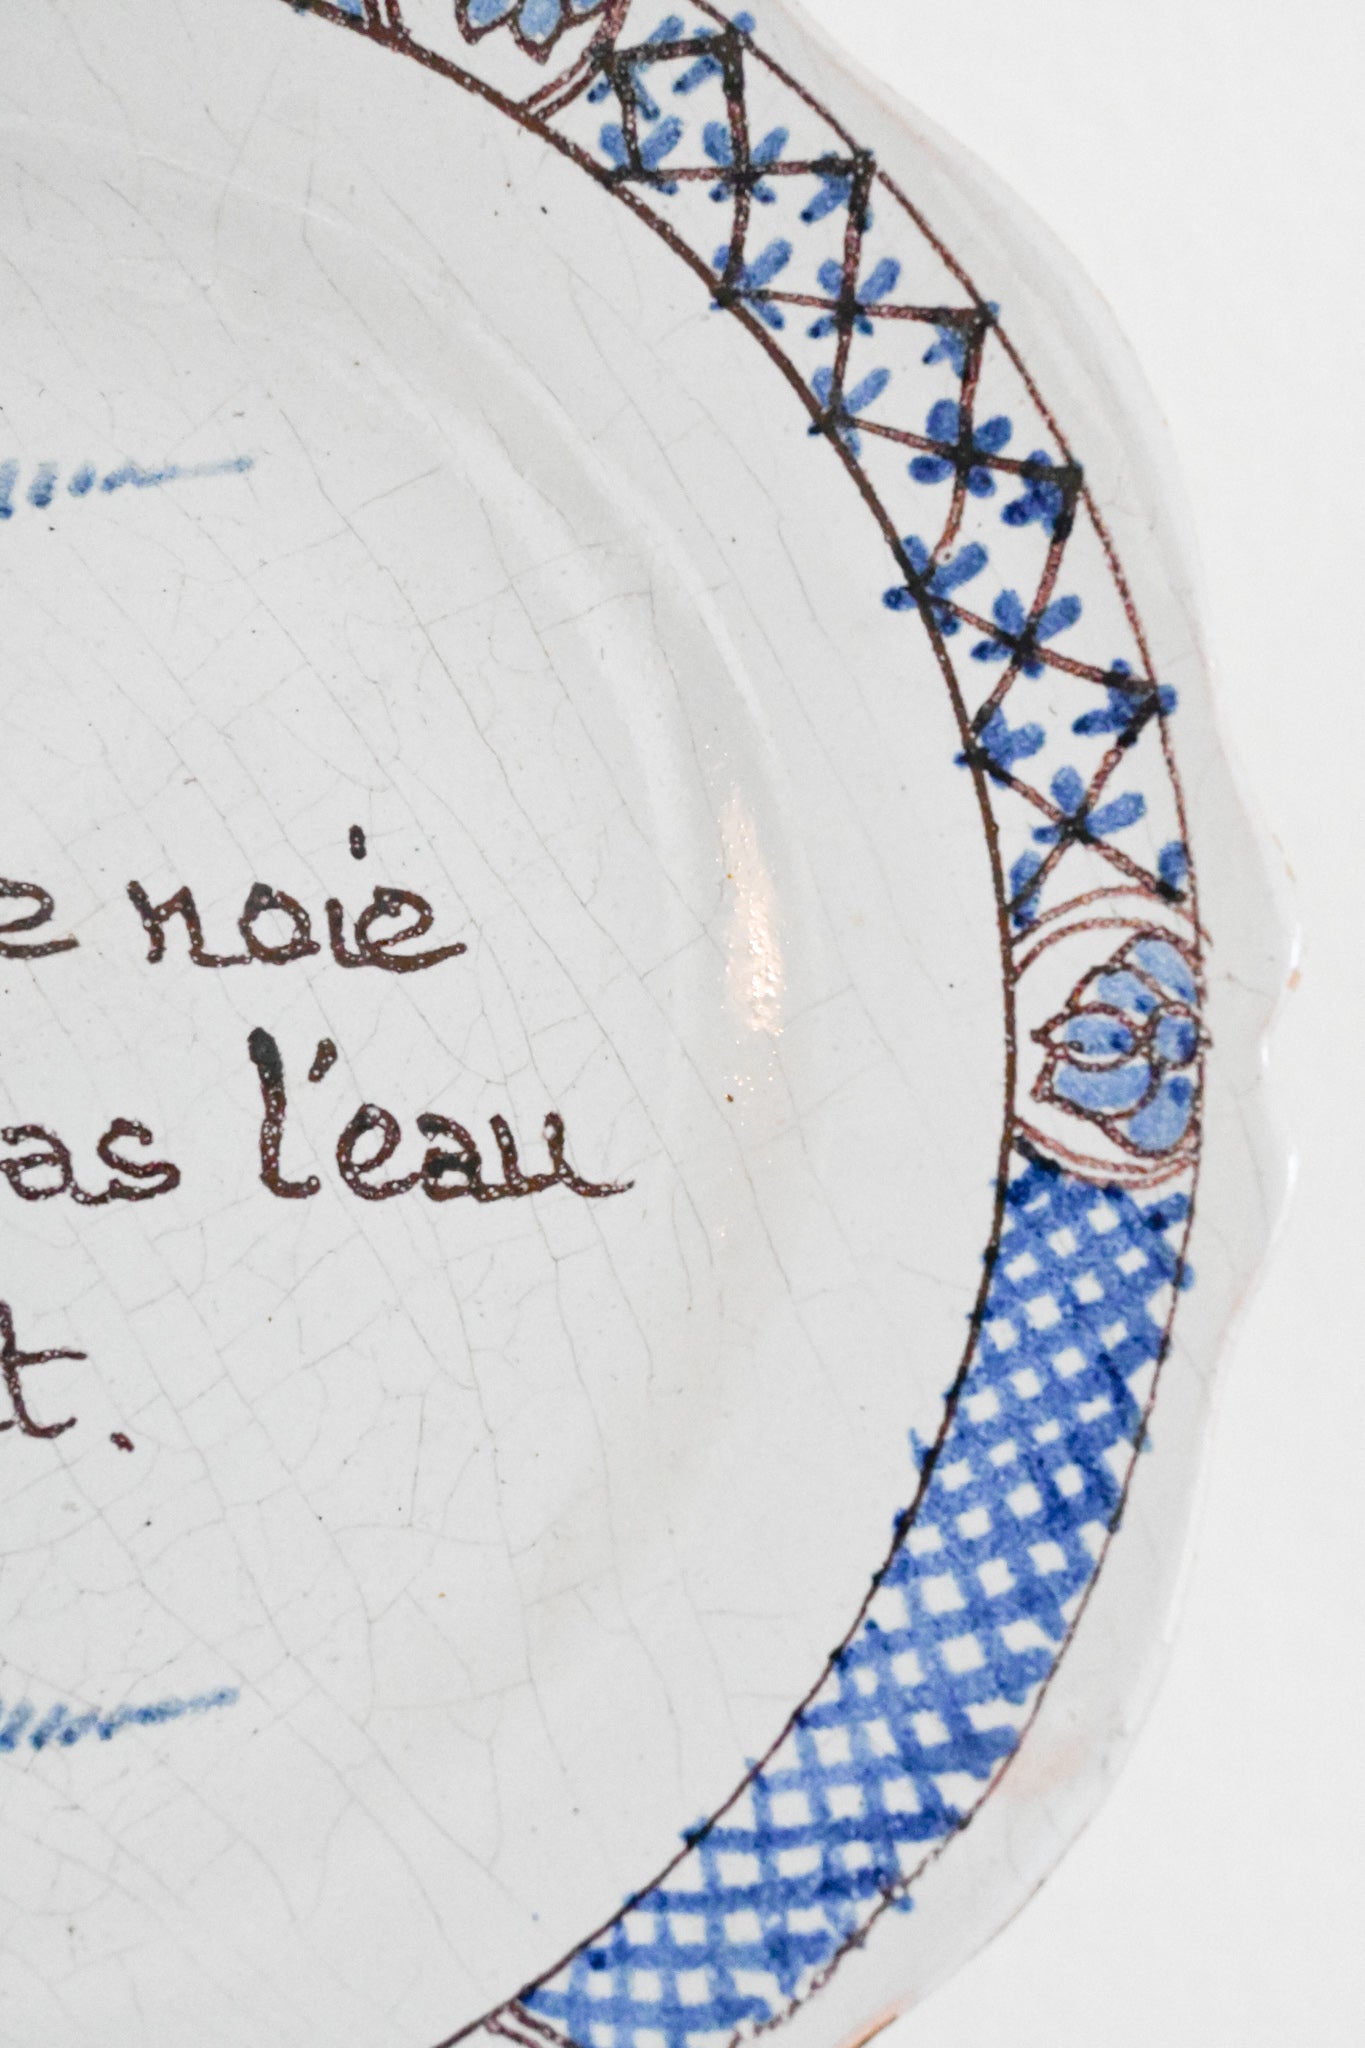 e noie
as l'eau
t.